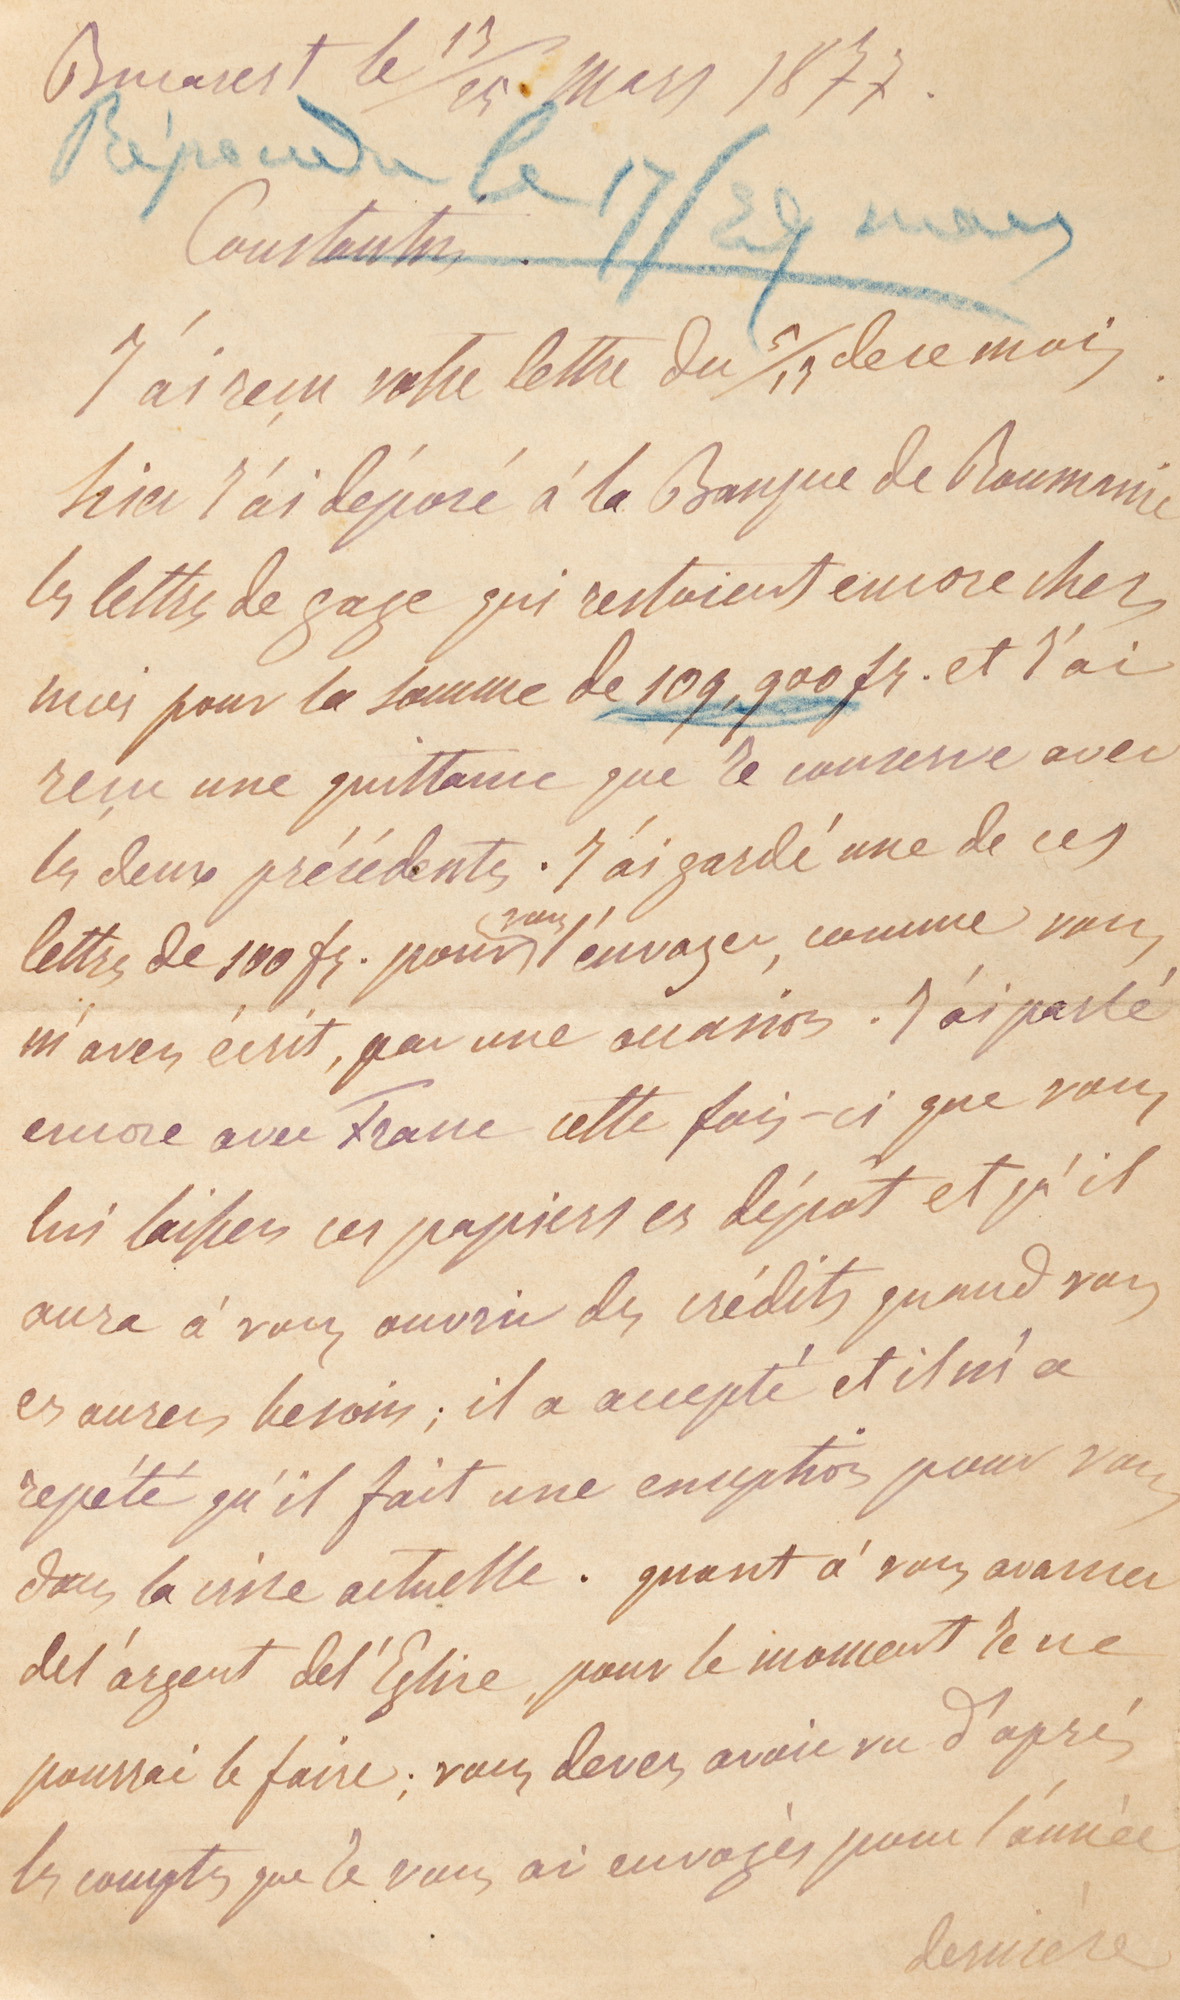 Bucarest le 13/25 Mars 1877.
Répondu le 17/29 mars
Constantin.
J'ai reçu votre lettre du de ce mois.
hier J'ai déposé à la Banque de Roumanie
les lettres de gage qui restaient encore chez
moi pour la somme de 109,900 fr. et J'ai
reçu une quittance que Je conserve avec
les deux précédentes. J'ai gardé une de ces
lettres de 100 fr. pour vous l'envoyer, comme vous
m'avez écrit, par une occasion. J'ai parlé
encore avec Franc cette fois-ci que vous
lui laissez ces papiers en dépôt et qu'il
aura à vous ouvrir des crédits quand vous
en aurez besoin; il a accepté et il m'a
repété qu'il fait une exception pour vous
dans la crise actuelle. quant à vous avancer
de l'argent de l'Eglise, pour le moment Je ne
pourrai le faire; vous devez avoir vu d'après
les comptes que Je vous ai envoyés pour l'année
dernière